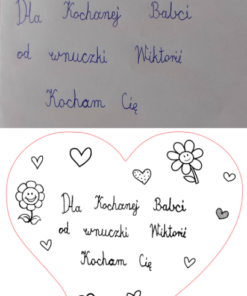 Dla Kochanej Babci
od wnuczki Wiktorii
Kocham Cię
Dla Kochanej Babci
od wnuczki Wiktorii
Kocham Cię